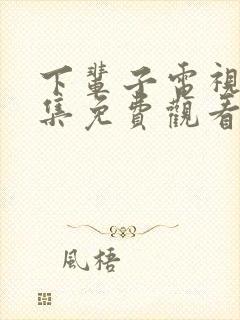 下輩子電視
集免費觀看
風梧